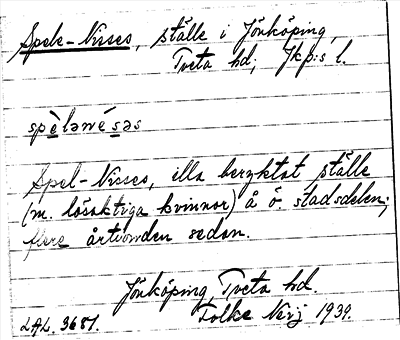 Spele-Nisses, ställe i Jönköping,
Tveta hd; Jkp:s l.
spèlənésəs
Spel-Nisses, illa beryktat ställe
(m. lösaktiga kvinnor) å ö. stadsdelen;
flere årtionden sedan.
Jönköping, Tveta hd.
LAL. 3681. Folke Nerj 1939.